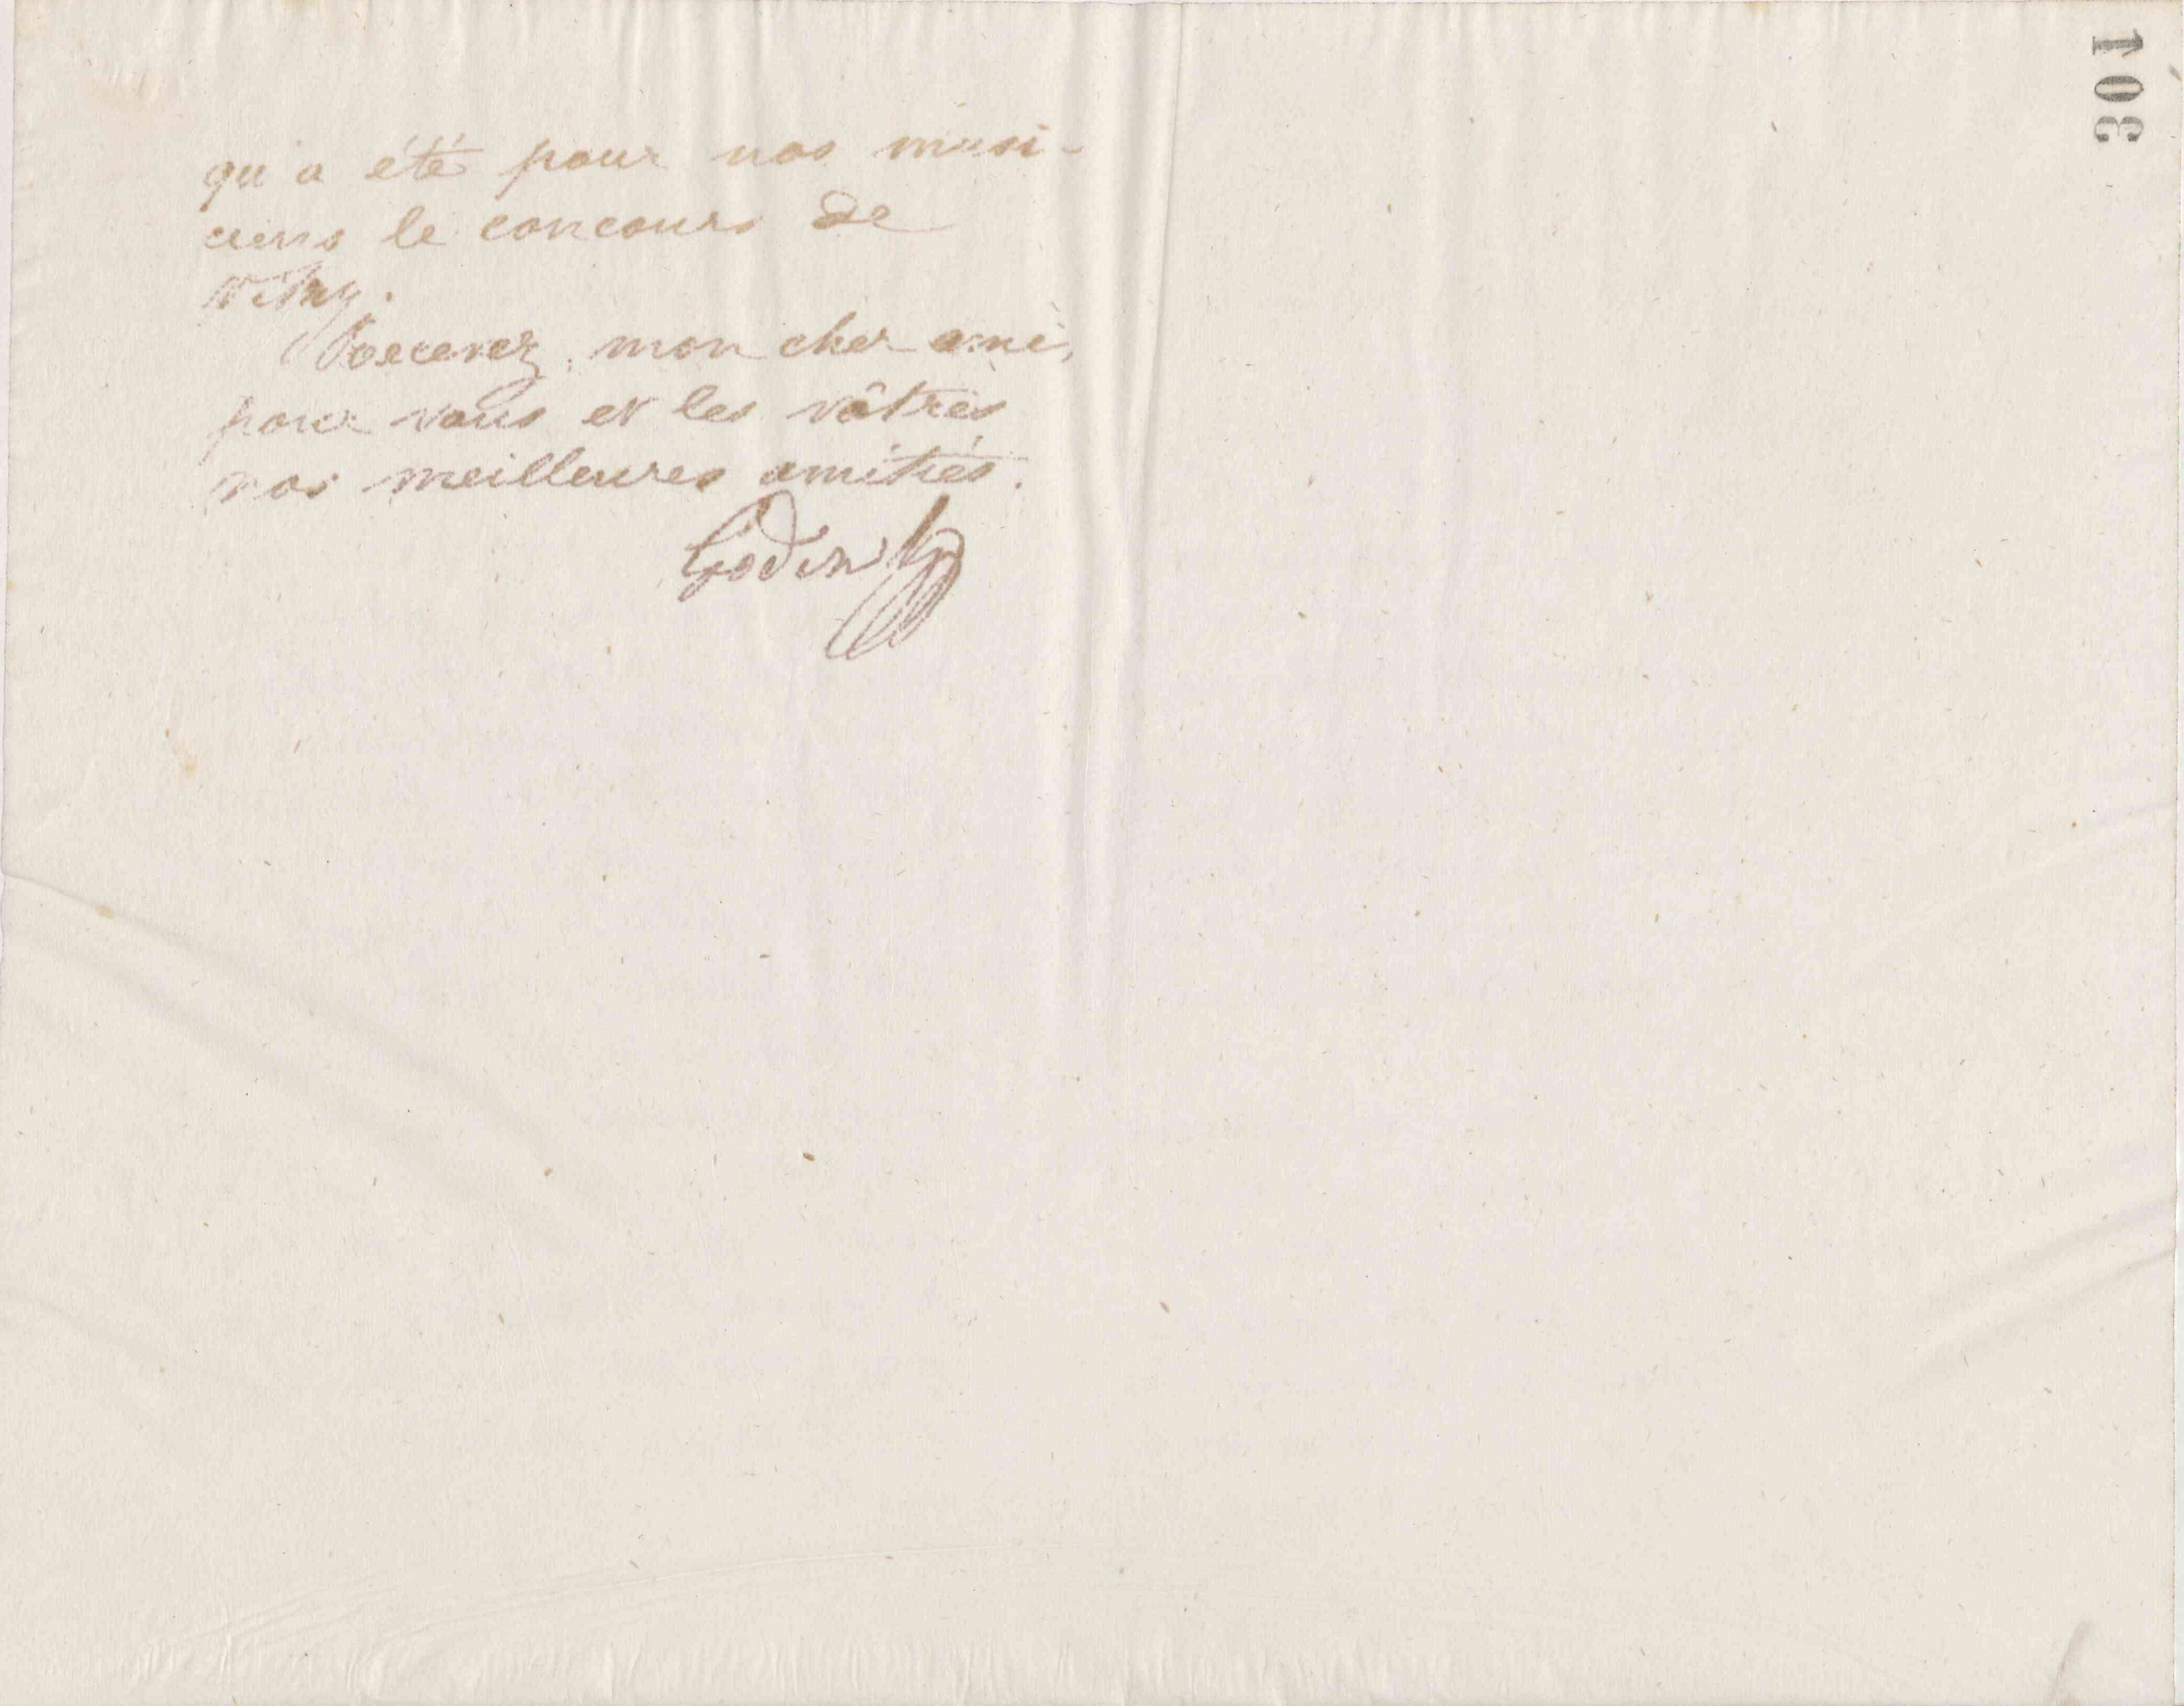 301
qu'a été pour nos musi-
ciens le concours de
Vitry.
Recevez, mon cher ami,
pour vous et les vôtres
nos meilleures amitiés.
Godin